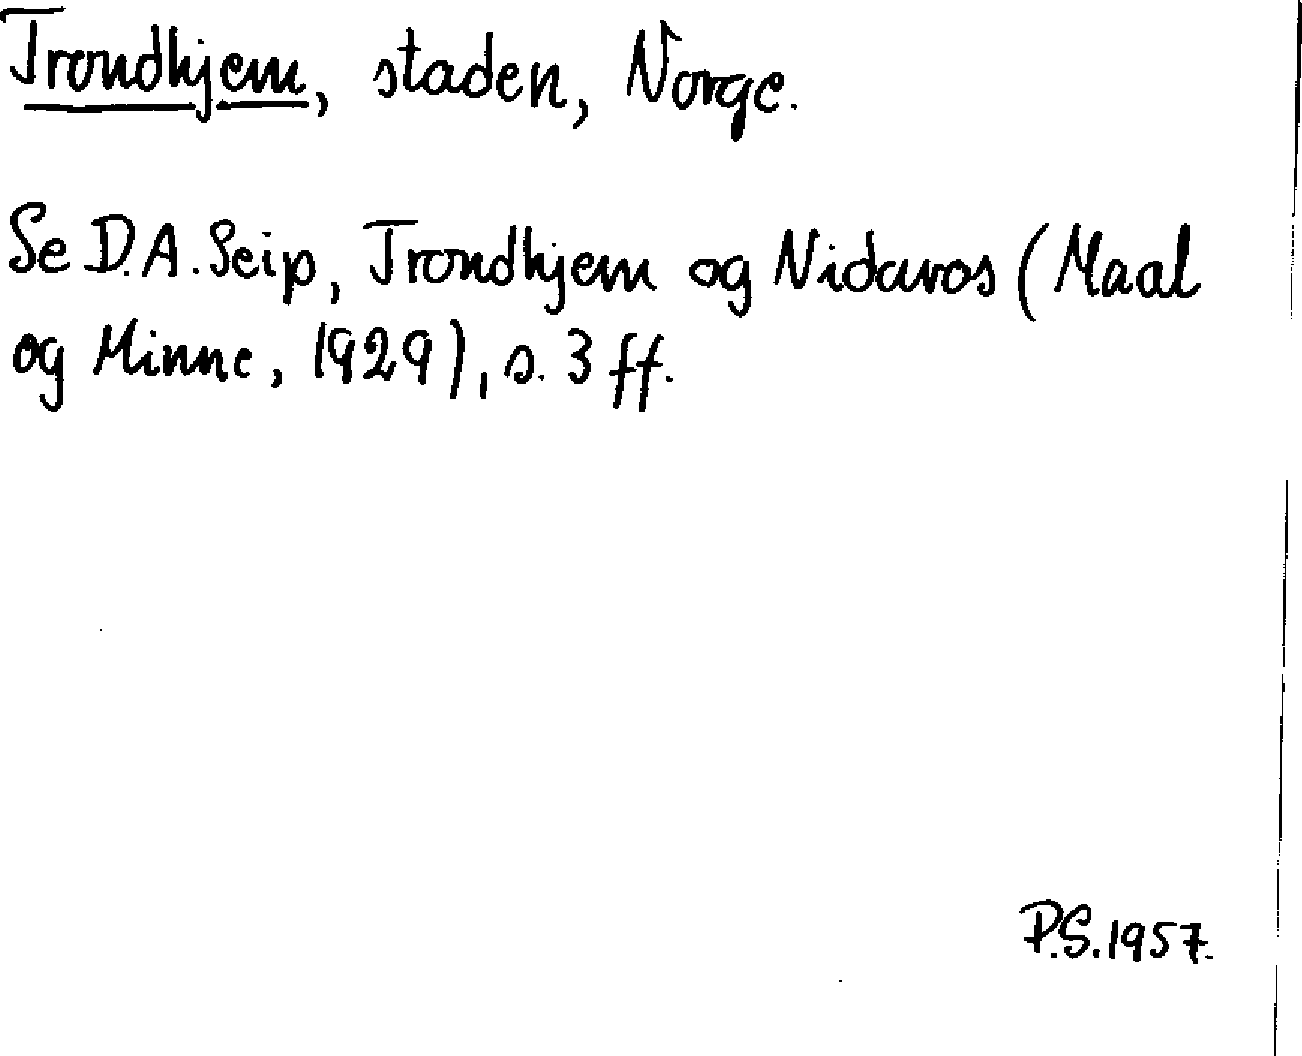 Trondhjem, staden, Norge.
Se D.A. Seip, Trondhjem og Nidaros (Maal
og Minne, 1929), s. 3 ff.
P.S. 1957.